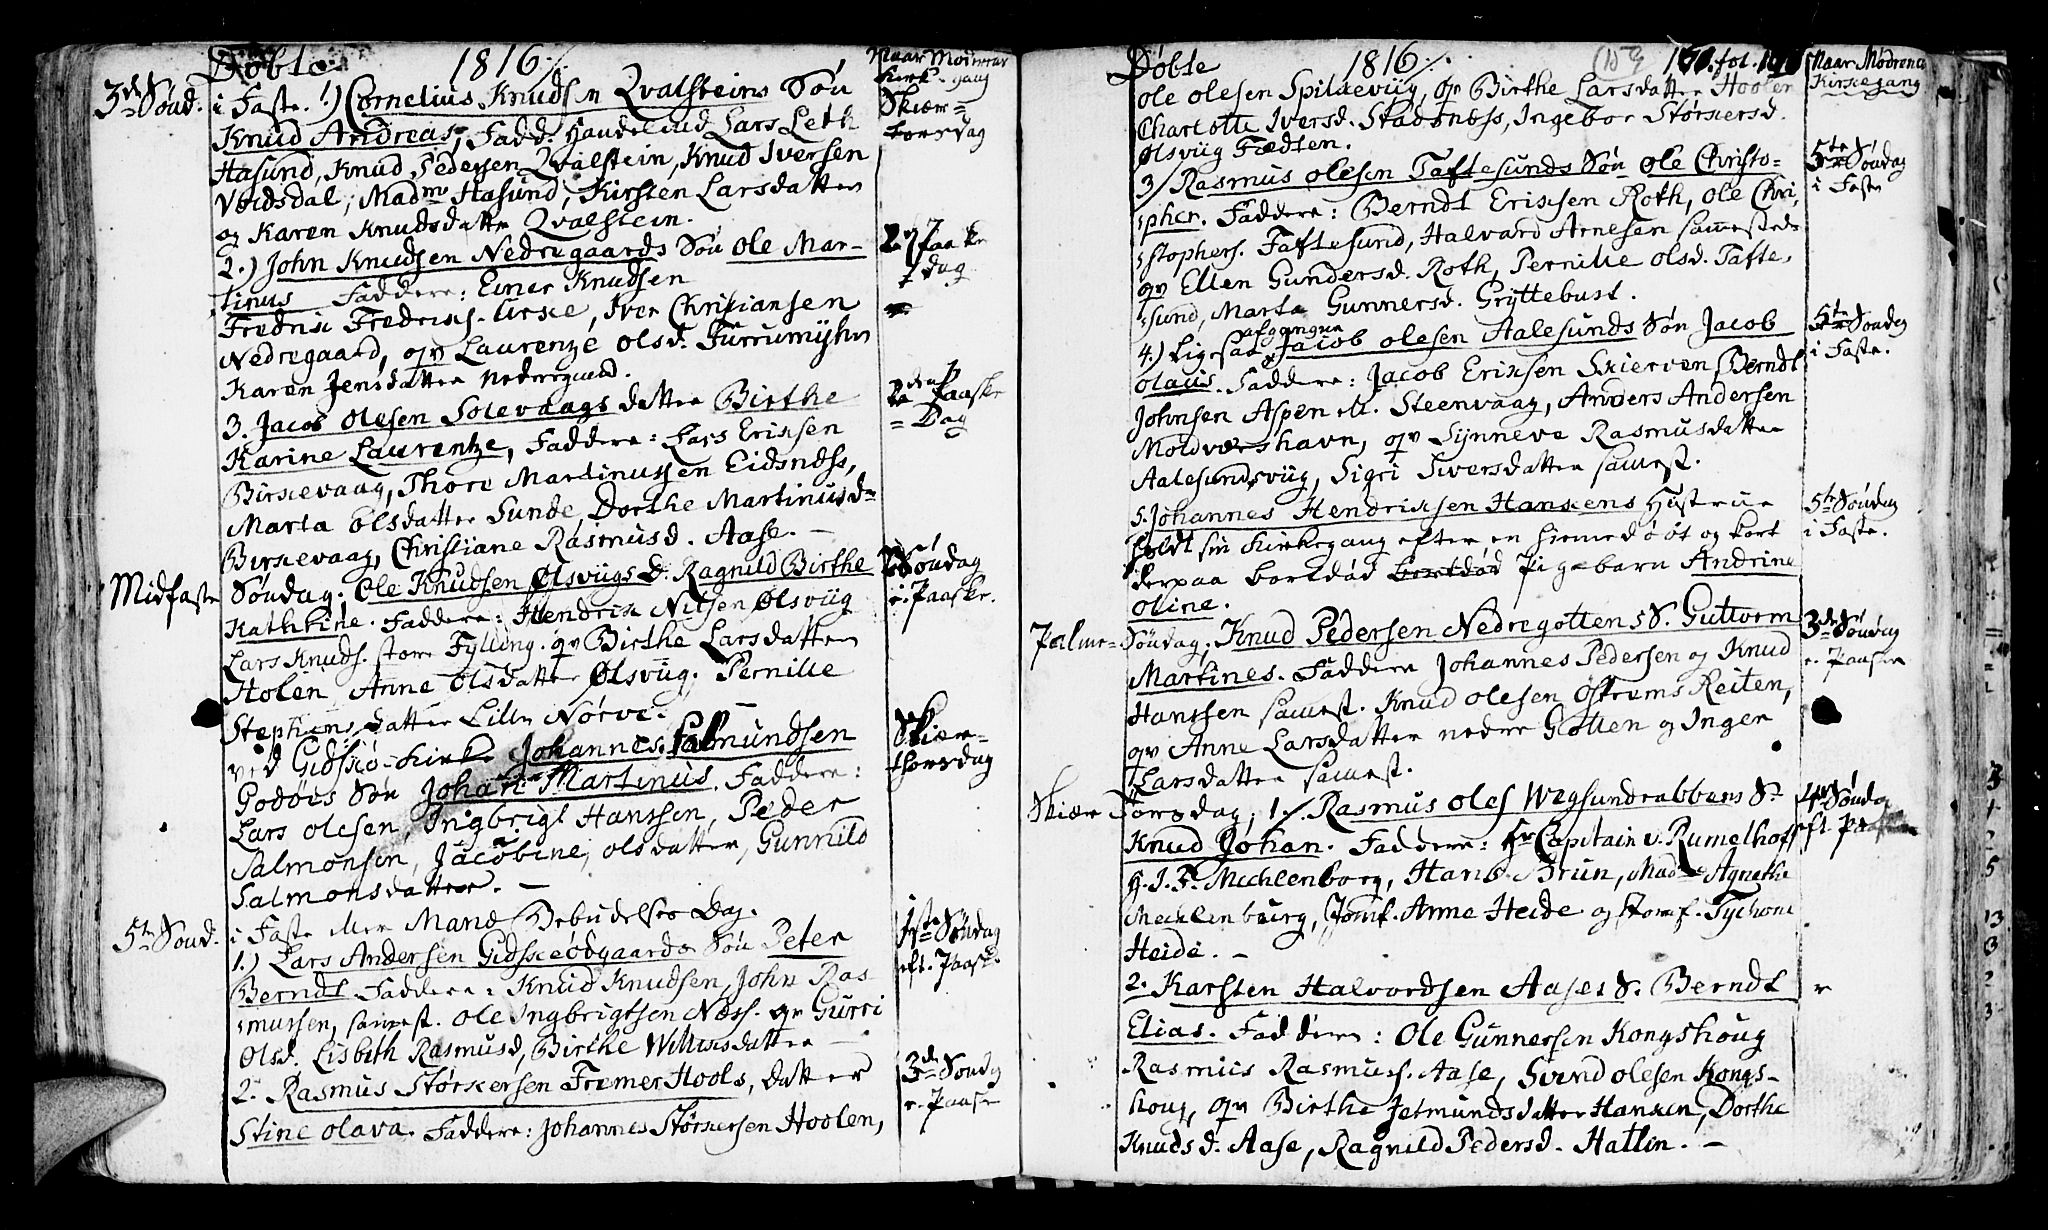 Døbte 1816
Naar Mødrene Kirk-gang
3de Sønd. i Faste. 1) Cornelius Knudsen Qvalsteins Søn
Knud Andreas, Fadd. Handelmd Lars Leth
Hasund, Knud Pedersen Qvalstein, Knud Iversen
Veidsdal, Madm Hasund, Kirsten Larsdatter
og Karen Knudsdatter Qvalstein.
Skiær=
torsdag
2.) John Knudsen Nedregaards Søn Ole Mar-
tinus Faddere: Einer Knudsen
Fredrik Fredriks. Urke, Iver Christiansen
Nedregaard, qv Laurenze Olsd. Furrumyhr
Karen Jensdatter Nedregaard.
2. Paaske
dag
3. Jacob Olesen Solevaags datter Birthe
Karine Laurentze, Faddere: Lars Eriksen
Birkevaag, Thore Martinussen Eidsnæss,
Marta Olsdatter Sunde, Dorthe Martinusd
Birkevaag, Christiane Rasmusd. Aase. —
2den Paaske
= Dag
Midfaste Søndag. Ole Knudsen Ølsviigs D. Ragnild Birthe
Kathrine. Faddere: Hendrik Nilsen Ølsviig
Lars Knuds. store Fylling. qv Birthe Larsdatter
Holen Anne Olsdatter Ølsviig. Pernille
Stephensdatter Lille Nørve. —
Søndag
e. Paaske.
ved Gidskø-Kirke Johannes Salmundsen
Godøes Søn Johan Martinus. Faddere:
Lars Olesen, Ingbrigt Hanssen, Peder
Salmonsen, Jacobine, Olsdatter, Gunnild
Salmonsdatter. —
Skiær=
thorsdag
5te Sønd. i Faste Mariæ Bebudelses Dag.
1.) Lars Andersen Gidskeødgaards Søn Peter
Berndt Faddere: Knud Knudsen, John Ras
mussen, samest. Ole Ingbrigtsen Næss. qv Gurri
Olsd. Lisbeth Rasmusd, Birthe Willumsdatter —
1ste Søndag
eft. Paask.
2. Rasmus Størkersen Fremer Hools, datter
Stine Olava. Faddere: Johannes Størkersen Hoolen,
3de Søndg
e. Paaske
Døbte 1816
153 fol.
Naar Mødrene
Kirkegang
Ole Olesen Spilkeviig, qv Birthe Larsdatter Hoolen
Charlotte Iversd. Stadsnæss, Ingebor Størkersd.
Ølsviig Fædten.
3/ Rasmus Olesen Taftesunds Søn Ole Christo-
pher. Faddere: Berndt Eriksen Roth, Ole Chri-
stophers. Taftesund, Halvard Arnesen sammesteds
qv Ellen Gundersd. Roth, Pernille Olsd. Tafte-
sund, Marta Gunnersd. Gryttebust.
5te Søndag
i Faste
4.) Ligesaa afgangne Jacob Olesen Aalesunds Søn Jacob
Olaus. Faddere: Jacob Eriksen Skierven Berndt
Johnsen Aspen M. Steenvaag, Anders Andersen
Moldværshavn, qv Synneve Rasmusdatter
Aalesundsviig, Sigri Siversdatter samest.
5te Søndag
i Faste.
5. Johannes Hendriksen Hanskens Hustrue
holdt sin Kirkegang efter en hiemedøbt og kort
derpaa bortdød Pigebarn Andrine
Oline.
5te Søndag
i Faste.
Palme=Søndag. Knud Pedersen Nedregottens S. Guttorm
Martines. Faddere Johannes Pedersen og Knud
Hanssen samest. Knud Olesen Ostrems Reiten,
qv Anne Larsdatter nedre Gotten og Inger
Larsdatter samest.
3de Søndag
e. Paaske
Skiær Torsdag, 1/. Rasmus Oles Wegsundrabbens S.
Knud Johan. Faddere: Hr Capitain v. Rumelhoff
H. J. F. Mechlenborg, Hans Brun, Mad Agnethe
Mechlenburg, Jomf. Anne Heide og Jomf. Tychone
Heide. —
4de Søndag
eft. Paaske
2. Karsten Halvordsen Aases S. Berndt
Elias. Faddere: Ole Gunnersen Kongshoug
Rasmus Rasmus. Aase, Svend Olesen Kongs-
houg, qv Birthe Jetmundsdatter Hansken, Dorthe
Knudsd. Aase, Ragnild Pedersd. Hatlen. —